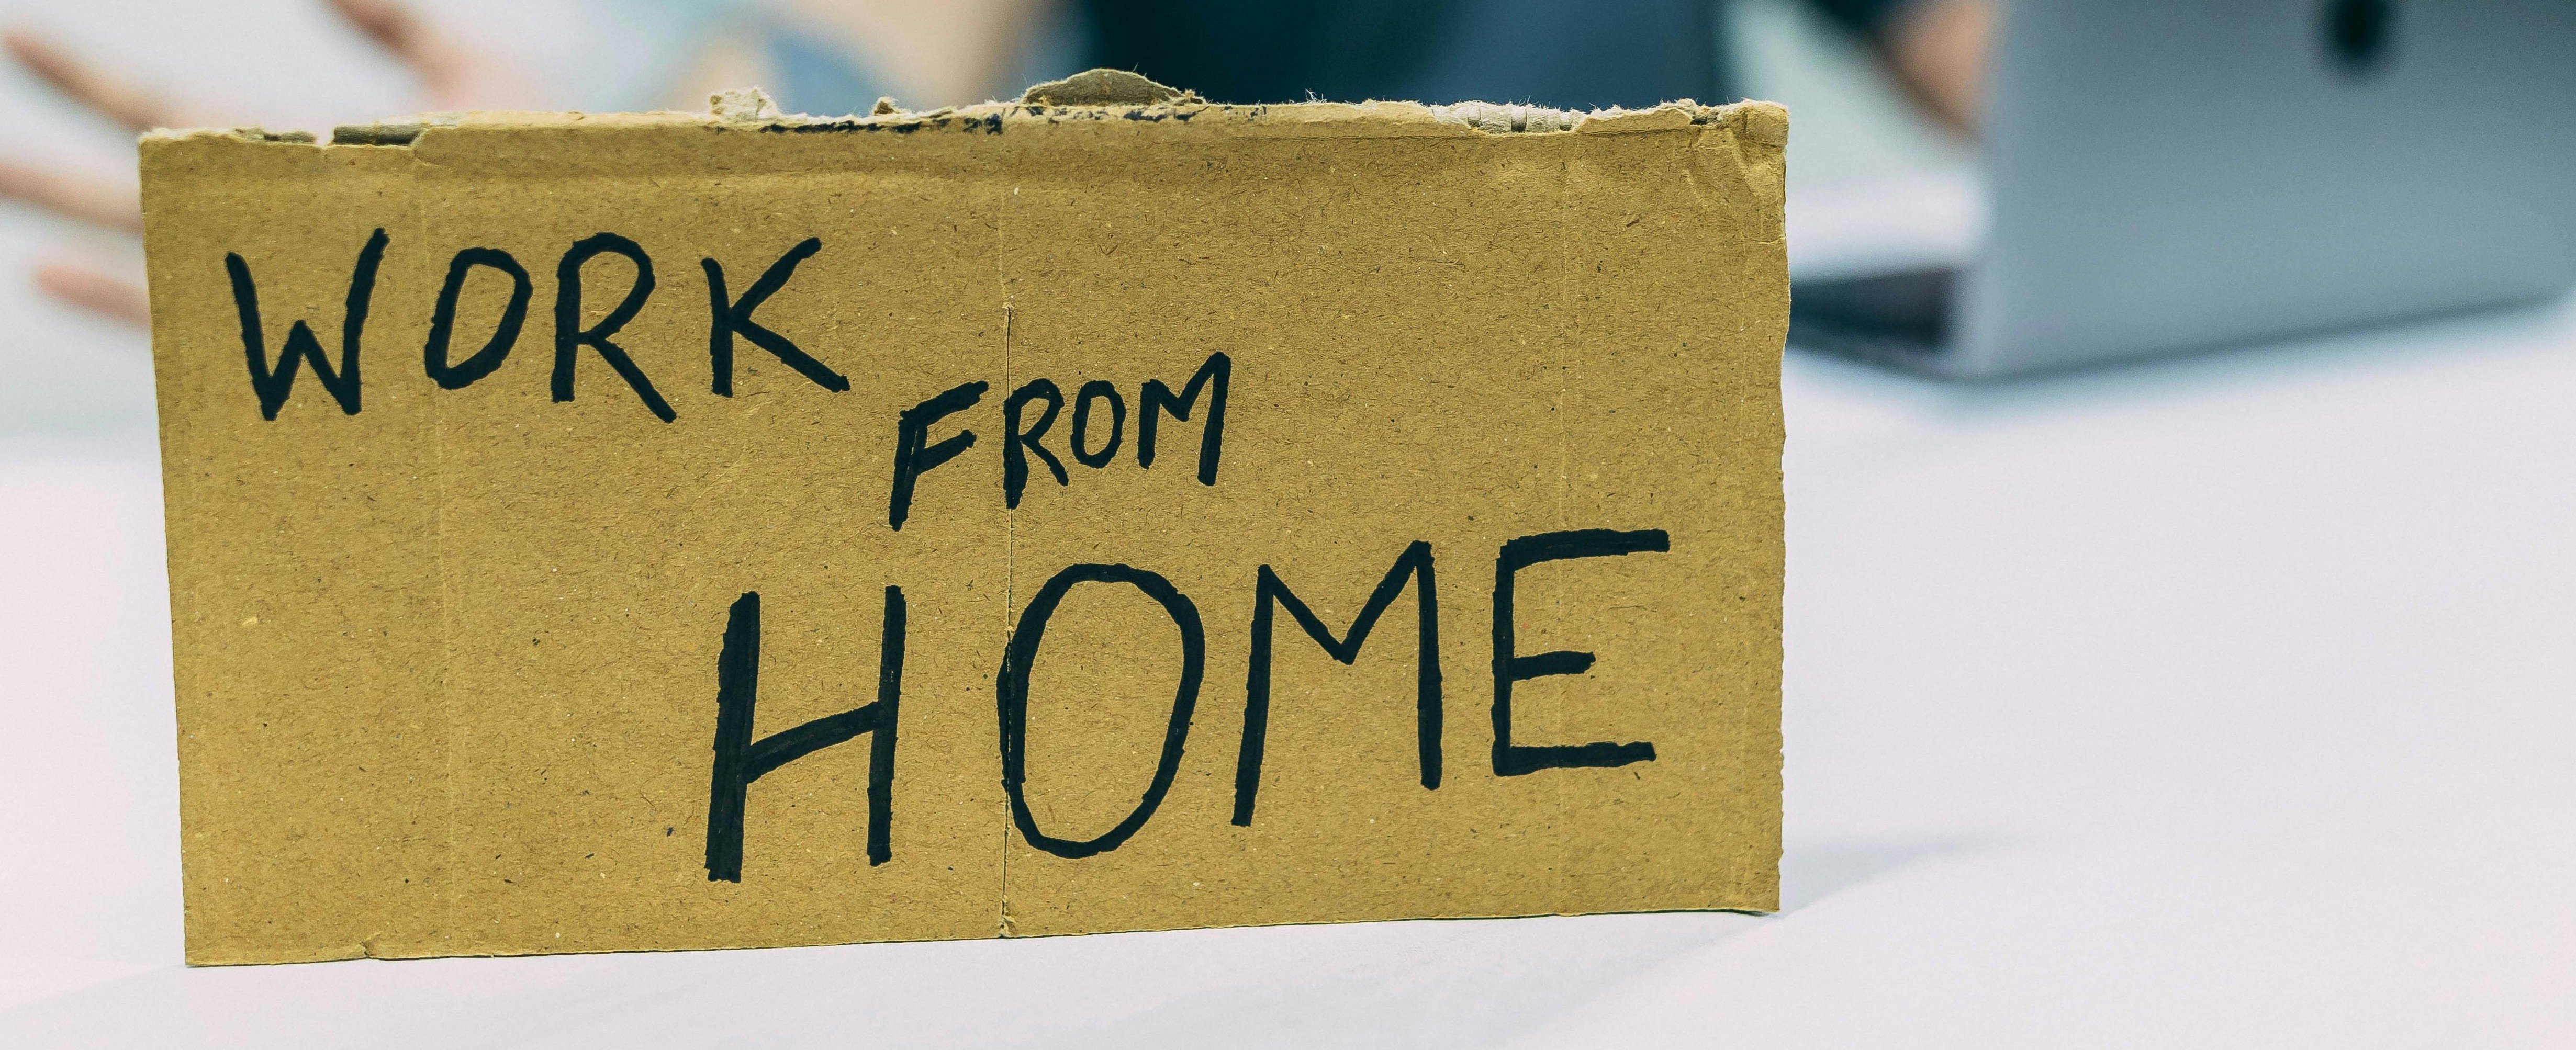 WORK
FROM
HOME